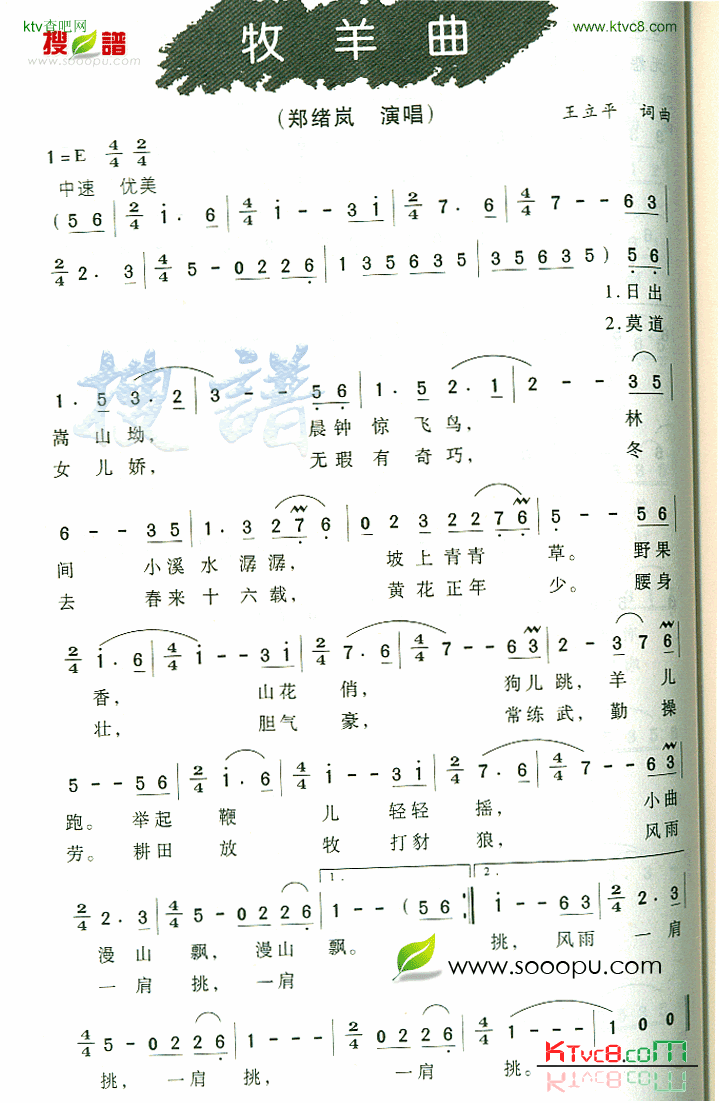 ktv查吧网
www.ktvc8.com
搜谱
http://www.sooopu.com
牧羊曲
(郑绪岚 演唱)
王立平 词曲
1=E 4/4 2/4
中速 优美
(5 6 | 2/4 i· 6 | 4/4 i - - 3 i | 2/4 7· 6 | 4/4 7 - - 6 3 |
2/4 2· 3 | 4/4 5 - 0 2 2 6 | 1 3 5 6 3 5 | 3 5 6 3 5 ) 5 6 |
1.日出
2.莫道
1· 5 3· 2 | 3 - - 5 6 | 1· 5 2· 1 | 2 - - 3 5 |
嵩山坳, 晨钟惊飞鸟, 林
女儿娇, 无瑕有奇巧, 冬
6 - - 3 5 | 1· 3 2 7 6 | 0 2 3 2 2 7 6 | 5 - - 5 6 |
间 小溪水潺潺, 坡上青青 草。 野果
去 春来十六载, 黄花正年 少。 腰身
2/4 i· 6 | 4/4 i - - 3 i | 2/4 7· 6 | 4/4 7 - - 6 3 | 2 - 3 7 6 |
香, 山花 俏, 狗儿跳, 羊儿
壮, 胆气 豪, 常练武, 勤操
5 - - 5 6 | 2/4 i· 6 | 4/4 i - - 3 i | 2/4 7· 6 | 4/4 7 - - 6 3 |
跑。 举起 鞭 儿 轻轻 摇, 小曲
劳。 耕田 放 牧 打豺 狼, 风雨
1. 2.
2/4 2· 3 | 4/4 5 - 0 2 2 6 | 1 - - (5 6 :| i - - 6 3 | 2/4 2· 3 |
漫山 飘, 漫山 飘。 挑, 风雨 一肩
一肩 挑, 一肩
www.sooopu.com
4/4 5 - 0 2 2 6 | 1 - - - | 2/4 0 2 2 6 | 4/4 1 - - - | 1 0 0 ‖
挑, 一肩 挑, 一肩 挑。
KTvc8.com